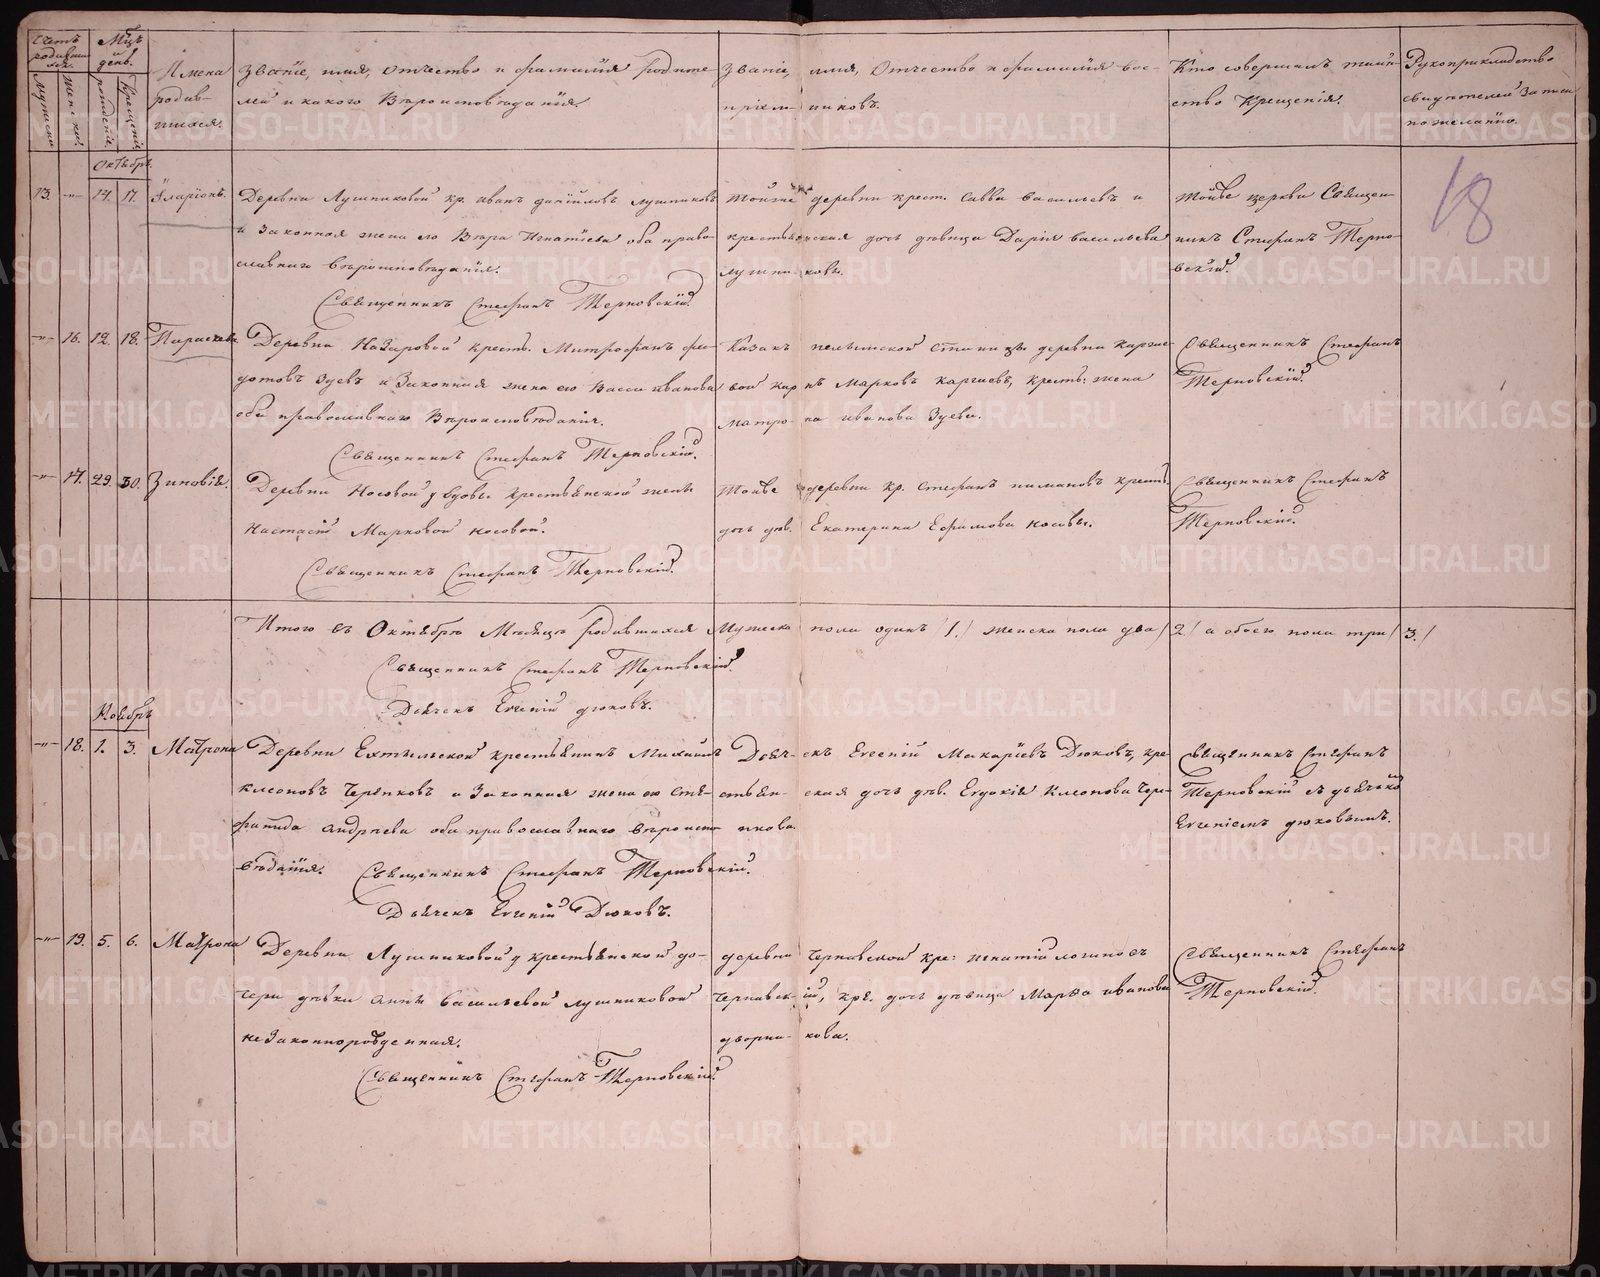 Счетъ родившихся.
Мужеска
Женска.
Мѣцъ и день.
рожденія.
Крещенія.
Имена родившихся.
Званіе, имя, отчество и фамилія родителей и какого Вѣроисповѣданія.
Званіе, имя, отчество и фамилія воспріемниковъ.
Кто совершалъ таинство Крещенія.
Рукоприкладство свидѣтелей записи по желанію.
Октябрь.
18
13. -"- 14. 17. Иларіонъ. Деревни Лушниковой кр. Иванъ Даніиловъ Лушниковъ тойже деревни крест. Савва Васильевъ и тойже церкви Священ-
и Законная жена его Вѣра Игнатіева оба право- крестьянская дочь дѣвица Дарія Васильева никъ Стефанъ Терно-
славнаго вѣроисповѣданія. Лушникова. вскій.
Священникъ Стефанъ Терновскій.
-"- 16. 12. 18. Параскева Деревни Назаровой крест. Митрофанъ Фе- Казакъ станицы деревни Священникъ Стефанъ
дотовъ Зуевъ и Законная жена его Васса Иванова Марковъ Каргаевъ, крест. жена Терновскій.
оба православнаго Вѣроисповѣданія. Матрона Иванова Зуева.
Священникъ Стефанъ Терновскій.
-"- 17. 29. 30. Зиновія. Деревни Носовой у вдовы крестьянской жены Тойже деревни кр. Стефанъ крест. Священникъ Стефанъ
Настасіи Марковой Носовой. дочь дѣв. Екатерина Ефимова Носовы. Терновскій.
Священникъ Стефанъ Терновскій.
Итого въ Октябрѣ Мѣсяцѣ родившихся Мужеска пола одинъ /1./ женска пола два /2/ а обоего пола три /3./
Священникъ Стефанъ Терновскій.
Дьячекъ Евгеній Дюковъ.
Ноябрь
-"- 18. 1. 3. Матрона Деревни крестьянинъ Михаилъ Дьячекъ Евгеній Макаріевъ Дюковъ, кре- Священникъ Стефанъ
Клеоповъ Черепковъ и Законная жена его Сте- стьянская дочь дѣв. Евдокія Клеопова Чере- Терновскій съ дьячкомъ
фанида Андреева оба православнаго вѣроиспо- пкова Евгеніемъ Дюковымъ.
вѣданія. Священникъ Стефанъ Терновскій.
Дьячекъ Евгеній Дюковъ.
-"- 19. 5. 6. Матрона Деревни Лушниковой у крестьянской до- деревни Чернавской кре: Игнатій Логиновъ Священникъ Стефанъ
чери дѣвки Анны Васильевой Лушниковой Чернавскій, кре. дочь дѣвица Марѳа Иванова Терновскій.
незаконнорожденная. Дворникова.
Священникъ Стефанъ Терновскій.
METRIKI.GASO-URAL.RU